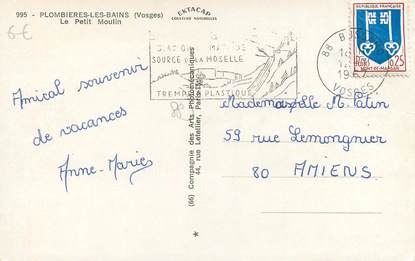 995 - PLOMBIERES-LES-BAINS (Vosges)
Le Petit Moulin
EKTACAP
COULEURS NATURELLES
6-€
SOURCE DE LA MOSELLE
TREMPLIN PLASTIQUE
88 B
VOSGES
REPUBLIQUE FRANÇAISE
0,25
MONT-DE-MARSAN
Amical souvenir
de vacances
Anne-Marie
(66) Compagnie des Arts Photomécaniques
44, rue Letellier, Paris
Mademoiselle M.
59 rue Lemongnier
80 AMIENS